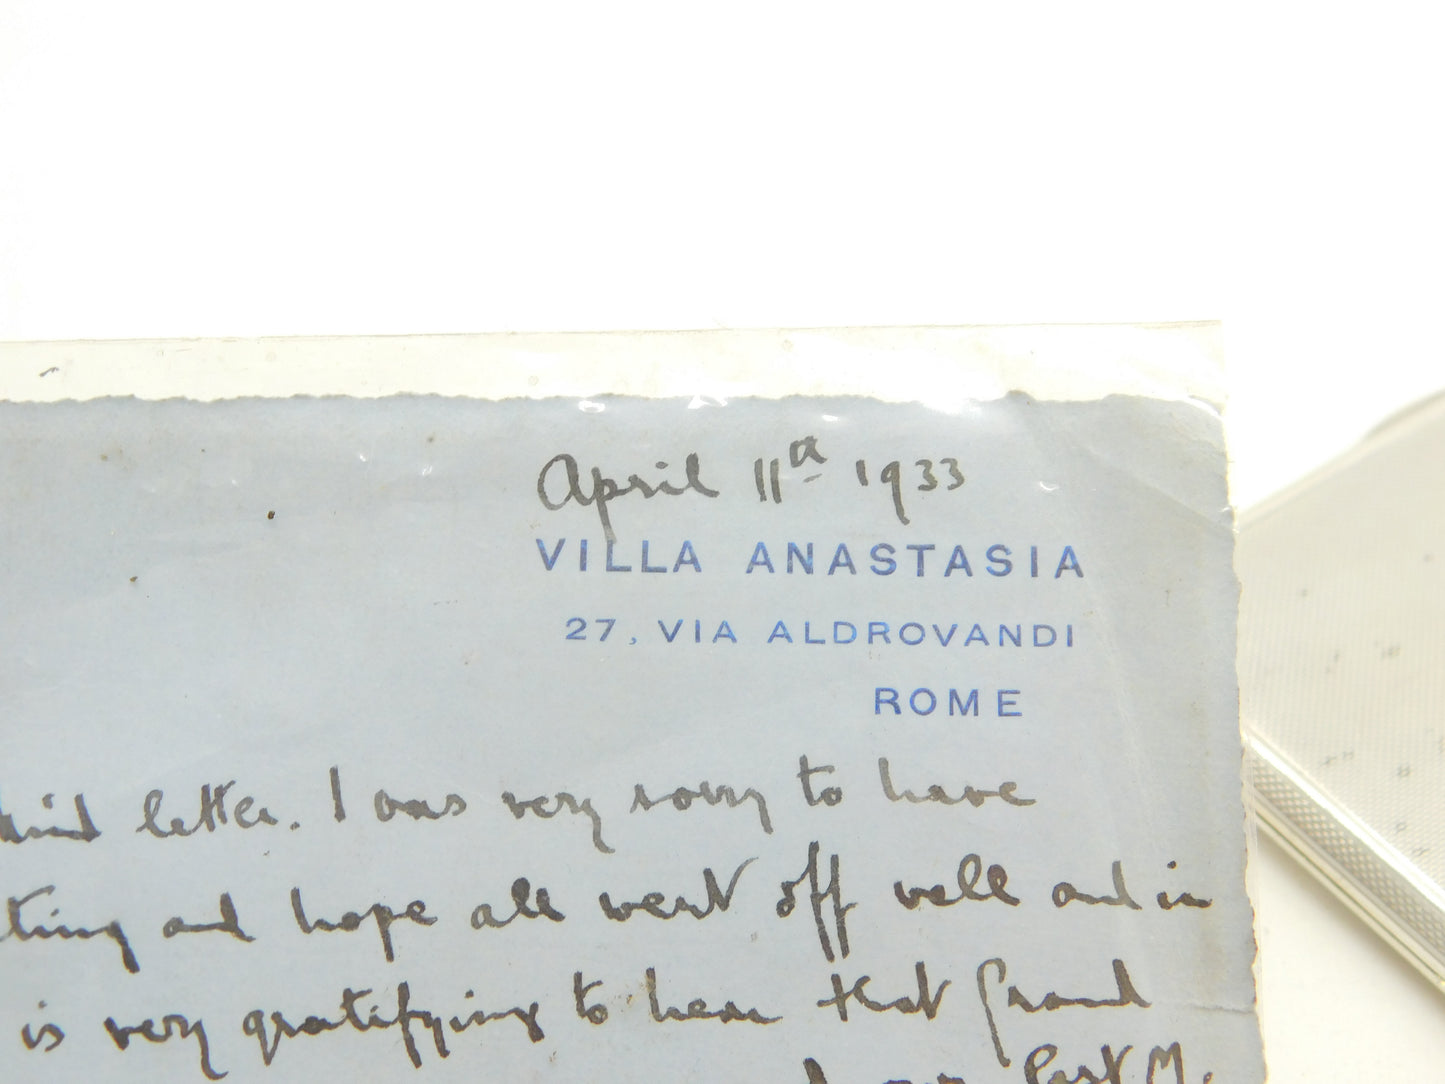 April 11th 1933
VILLA ANASTASIA
27, VIA ALDROVANDI
ROME
kind letter. I was very sorry to have
ting and hope all went off well and in
is very gratifying to hear that Grand
last M.